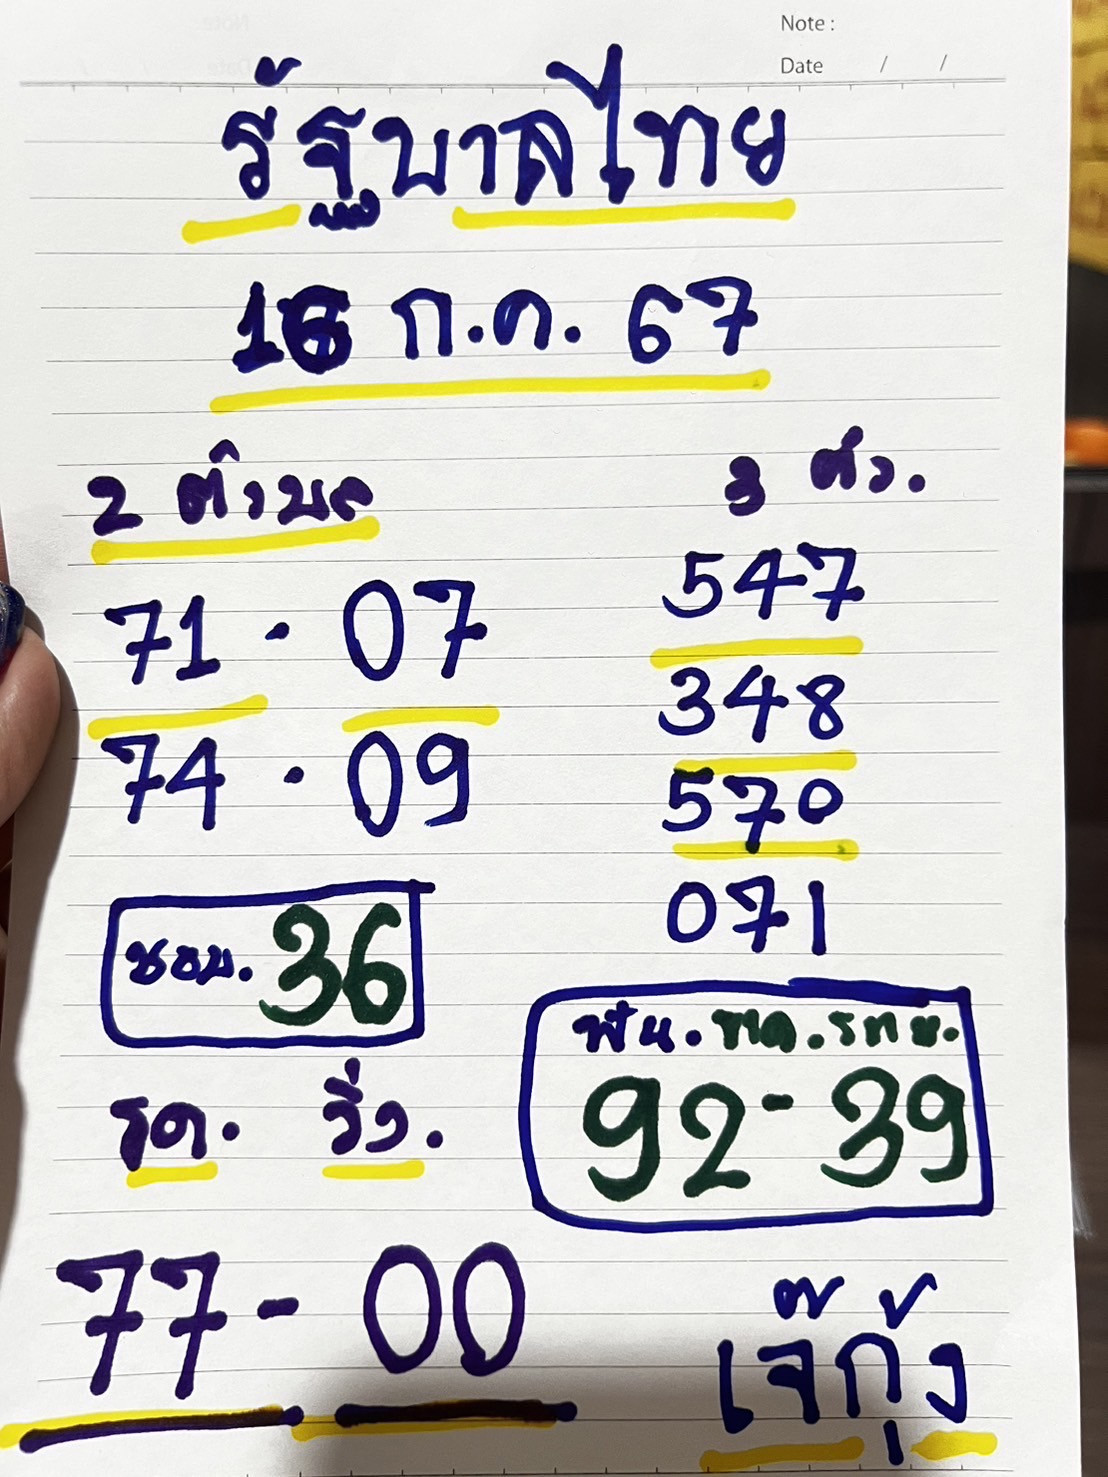 Note :
Date / /
รัฐบาลไทย
16 ก.ค. 67
2 ตัวบล
71 - 07
74 - 09
ชอบ. 36
รูด. วิ่ง.
77 - 00
3 ตัว.
547
348
570
071
ฟัน.
92 - 39
เจ๊กุ้ง